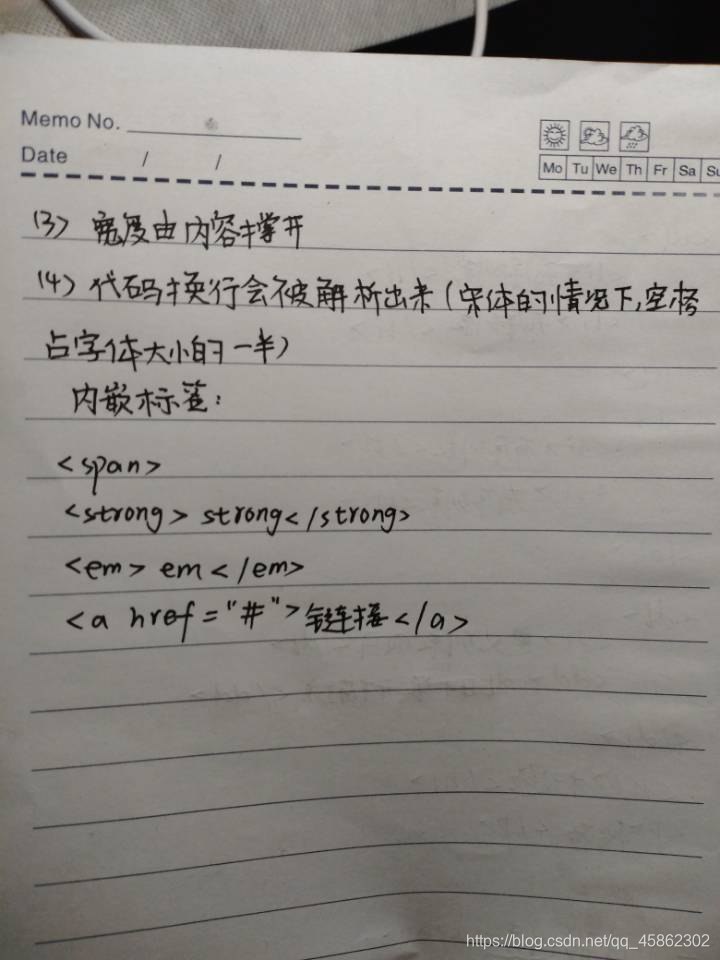 Memo No.
Date / /
Mo Tu We Th Fr Sa Su
(3) 宽度由内容撑开
(4) 代码换行会被解析出来(宋体的情况下,空格
占字体大小的一半)
内嵌标签:
<span>
<strong> strong</strong>
<em> em </em>
<a href="#">链连接</a>
https://blog.csdn.net/qq_45862302